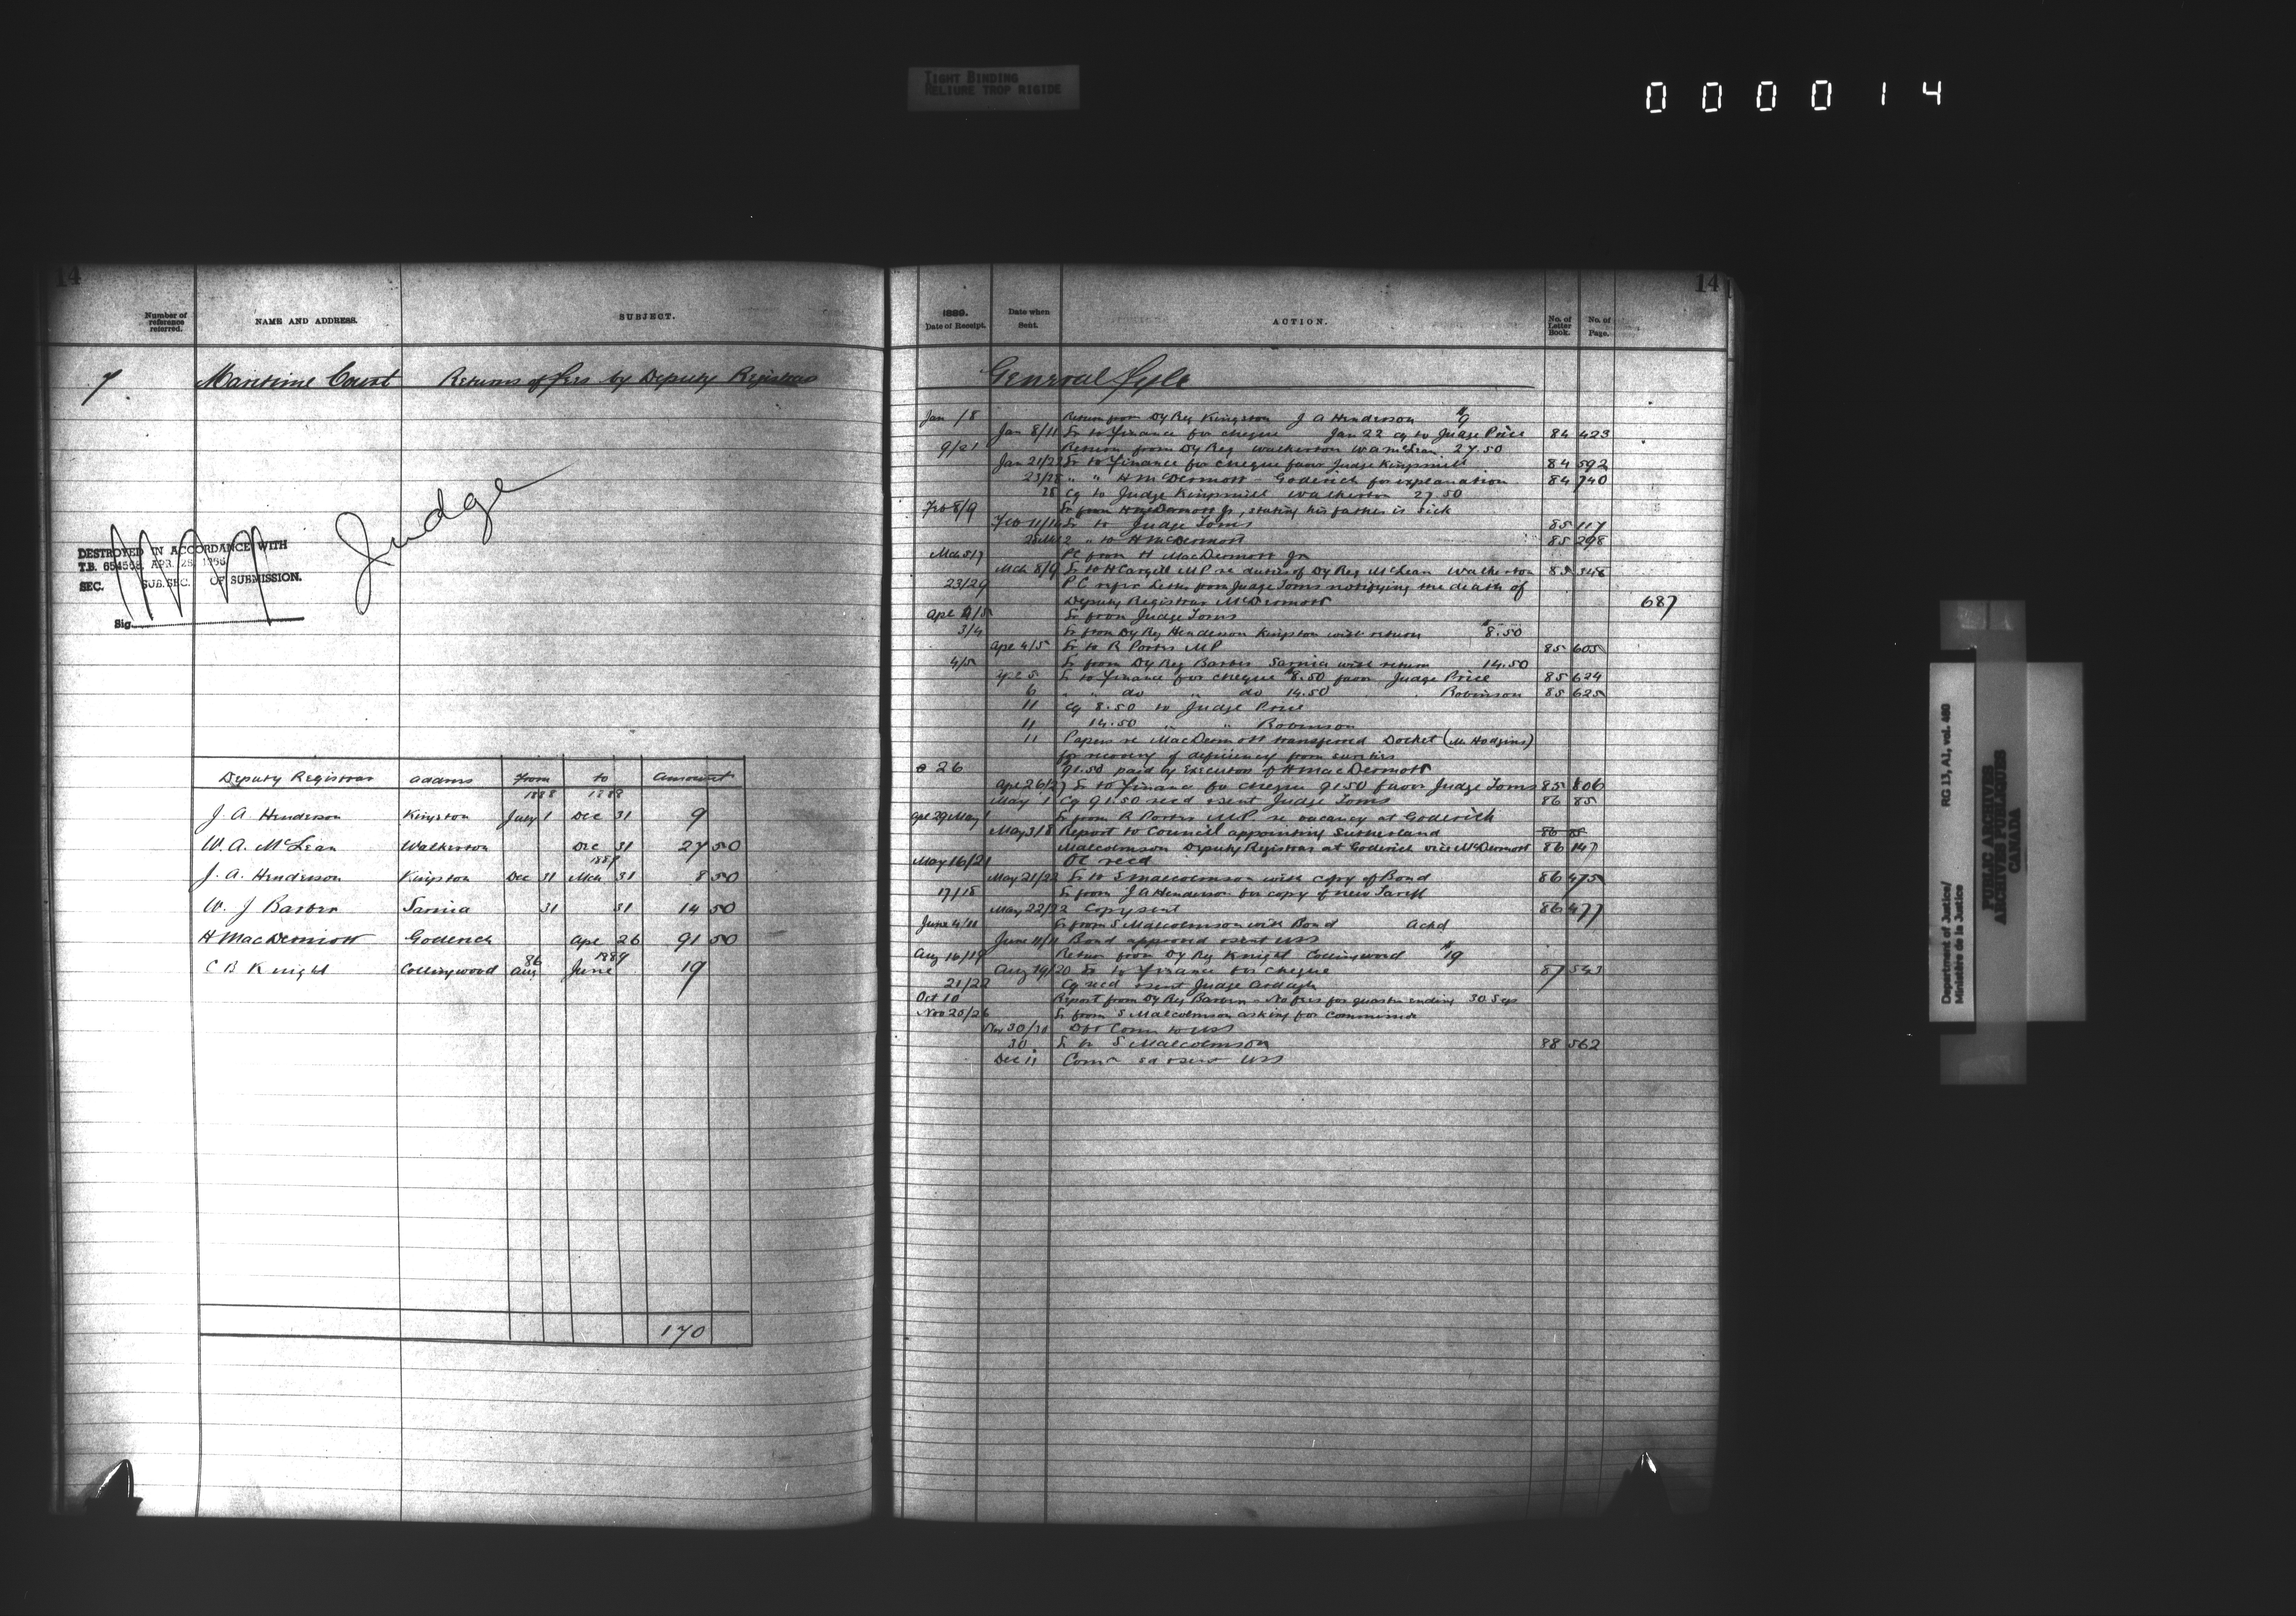 TIGHT BINDING
RELIURE TROP RIGIDE
000014
14
Number of reference referred.
NAME AND ADDRESS.
SUBJECT.
7 Maritime Court Returns of fees by Deputy Registrars
Judge
DESTROYED IN ACCORDANCE WITH
T.B. 654568, APR. 25, 1956
SEC. SUB. SEC. OF SUBMISSION.
Sig.
Deputy Registrar address from to amount
1888 1888
J. A. Henderson Kingston July 1 Dec 31 9
W. A. McLean Walkerton Dec 31 27 50
1889
J. A. Henderson Kingston Dec 31 Mch 31 8 50
W. J Barber Sarnia 31 31 14 50
H MacDermott Goderich Apl 26 91 50
86 1889
C B Knight Collingwood Aug June 19
170
14
1889.
Date of Receipt.
Date when Sent.
ACTION.
No. of Letter Book.
No. of Page.
General fyle
Jan /8 Return from Dy Reg Kingston J A Henderson $9
Jan 8/11 Lr to Finance for cheque Jan 22 cq to Judge Price 84 423
9/21 Return from Dy Reg Walkerton W A McLean 27.50
Jan 21/22 Lr to Finance for cheque favor Judge Kingsmill 84 592
23/28 " " H McDermott Goderich for explanation 84 740
28 Cq to Judge Kingsmill Walkerton 27.50
Feb 8/9 Lr from H McDermott Jr, stating his father is sick
Feb 11/14 Lr to Judge Toms 85 117
" to H McDermott 85 298
Mch 5/7 from H MacDermott Jr
Mch 8/9 Lr to H Cargill MP re duties of Dy Reg McLean Walkerton 85 348
23/29 P C refer Letter from Judge Toms notifying the death of
Deputy Registrar McDermott 687
Lr from Judge Toms
3/4 Lr from Dy Reg Henderson Kingston with return $8.50
Apl 4/5 Lr to R Porter MP 85 605
4/5 Lr from Dy Reg Barber Sarnia with return 14.50
Apl 5 Lr to Finance for cheque $8.50 favor Judge Price 85 624
6 " " do " do 14.50 Robinson 85 625
11 Cq 8.50 to Judge Price
11 14.50 " " Robinson
11 Papers re MacDermott transferred Docket (Mr Hodgins)
for recovery of deficiency from sureties
26 91.50 paid by Executors of H MacDermott
Apl 26/27 Lr to Finance for cheque 91.50 favor Judge Toms 85 806
May 1 Cq 91.50 recd & sent Judge Toms 86 85
Apl 29 May 1 Lr from R Porter M.P. re vacancy at Goderich
May 3/8 Report to Council appointing Sutherland 86 85
Malcolmson Deputy Registrar at Goderich vice McDermott 86 147
May 16/21 OC recd
May 21/22 Lr to S Malcolmson with copy of Bond 86 475
17/18 Lr from J A Henderson for copy of new Tariff
May 22/22 Copy sent 86 477
June 4/11 Lr from S Malcolmson with Bond Ackd
June 11/11 Bond approved & sent USS
Aug 16/19 Return from Dy Reg Knight Collingwood $19
Aug 19/20 Lr to Finance for cheque 87 543
21/22 Cq recd & sent Judge Ardagh
Oct 10 Report from Dy Reg Barber - No fees for quarter ending 30 Sep
Nov 25/26 Lr from S Malcolmson asking for Commission
Nov 30/30 Dft Comn to USS
30 Lr to S Malcolmson 88 562
Dec 11 Comn sd & sent USS
Department of Justice/
Ministère de la Justice
RG 13, A1, vol. 460
PUBLIC ARCHIVES
ARCHIVES PUBLIQUES
CANADA